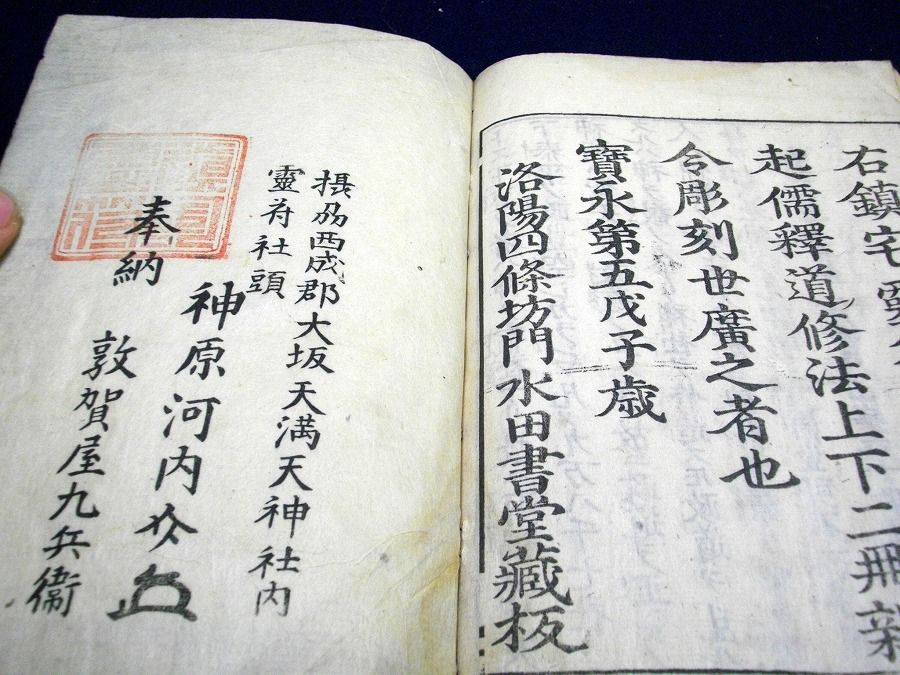 右鎮宅靈符
起儒釋道修法上下二冊新
令彫刻世廣之者也
寶永第五戊子歳
洛陽四條坊門水田書堂藏板
摂刕西成郡大坂天満天神社内
靈符社頭
神原河内介
奉納
敦賀屋九兵衛